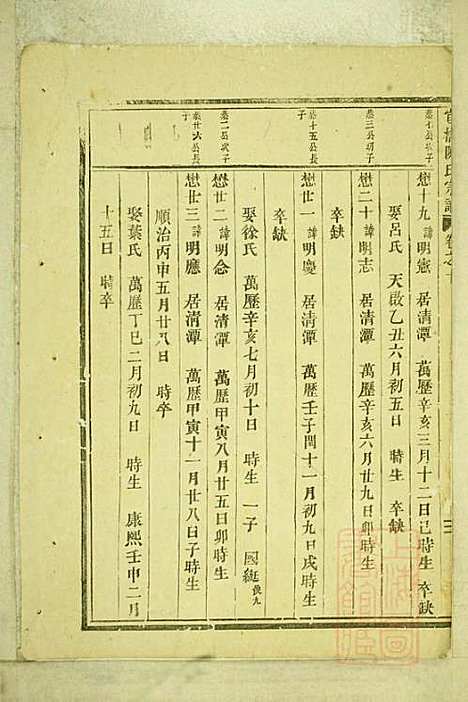 官橋陳氏宗譜 卷之
懋十九 諱明憲 居清潭 萬歷辛亥三月十二日巳時生 卒缺
娶呂氏 天啟乙丑六月初五日 時生 卒缺
懋二十 諱明志 居清潭 萬歷辛亥六月廿九日卯時生
卒缺
懋廿一 諱明慶 居清潭 萬歷壬子閏十一月初九日戌時生
卒缺
娶徐氏 萬歷辛亥七月初十日 時生 一子 國綎
懋廿二 諱明念 居清潭 萬歷甲寅八月廿五日卯時生
懋廿三 諱明應 居清潭 萬歷甲寅十一月廿八日子時生
順治丙申五月廿八日 時卒
娶葉氏 萬歷丁巳二月初九日 時生 康熙壬申二月
十五日 時卒